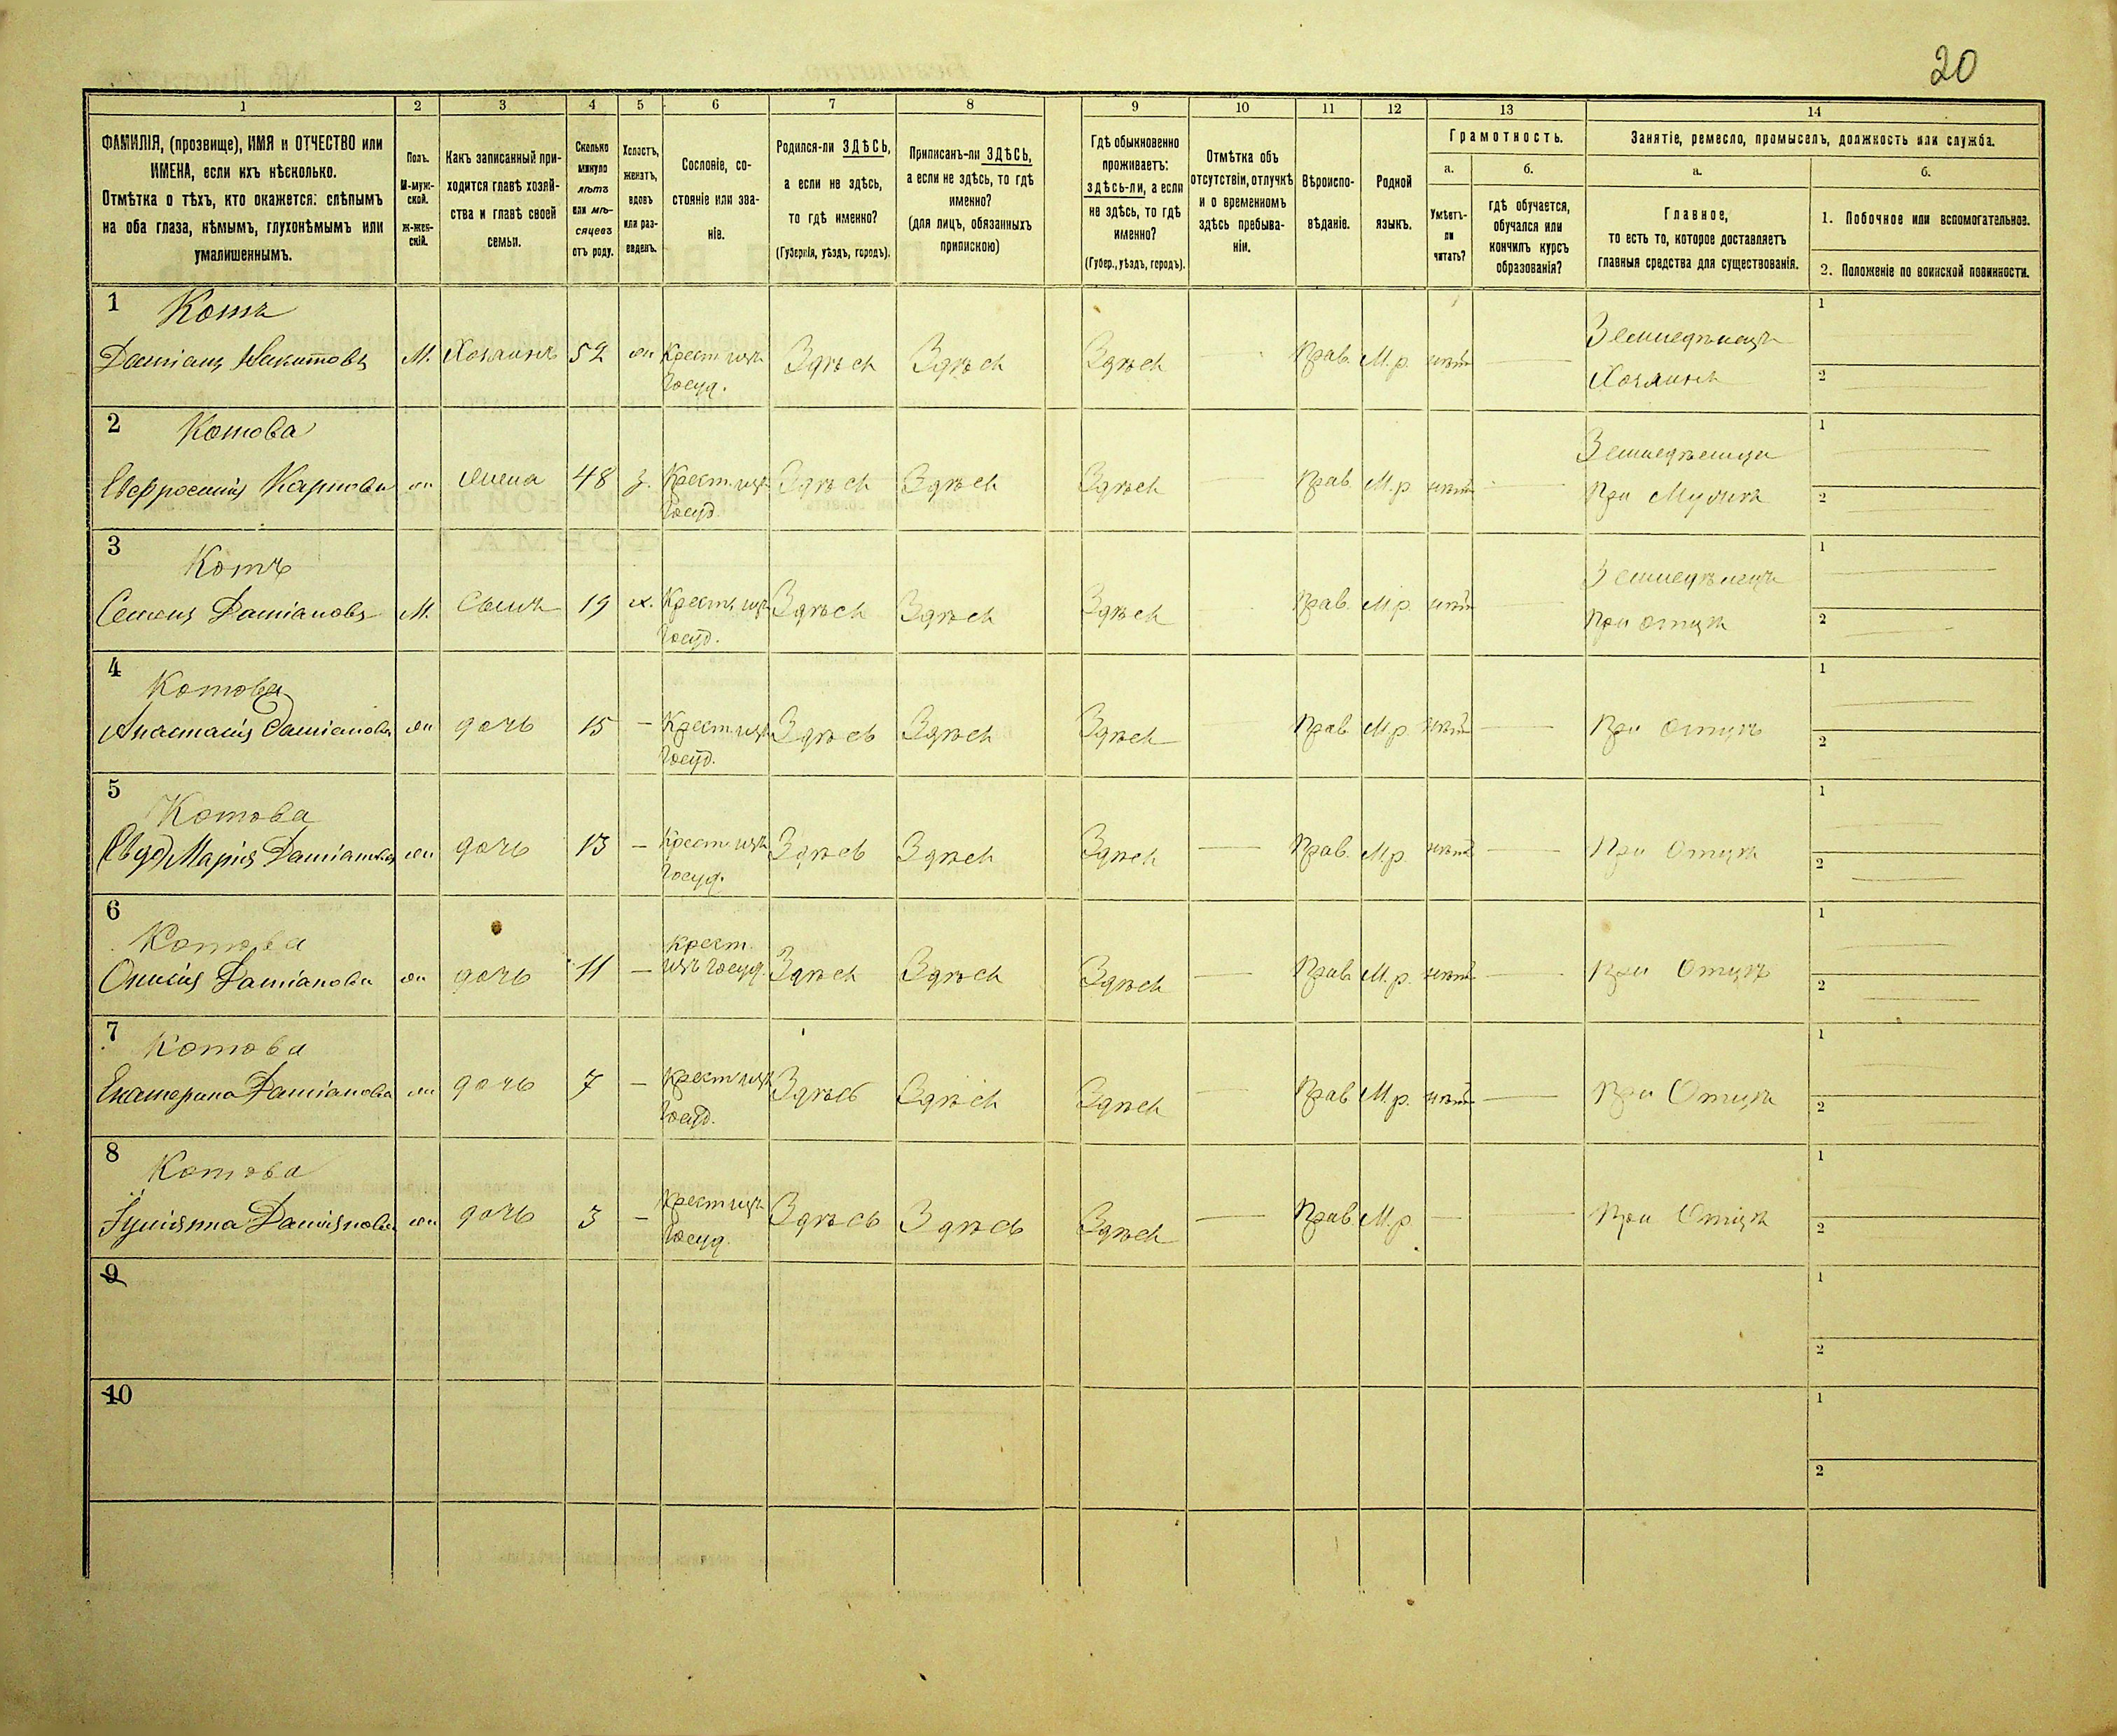 20
1 2 3 4 5 6 7 8 9 10 11 12 13 14
ФАМИЛІЯ, (прозвище), ИМЯ и ОТЧЕСТВО или
ИМЕНА, если ихъ нѣсколько.
Отмѣтка о тѣхъ, кто окажется: слѣпымъ
на оба глаза, нѣмымъ, глухонѣмымъ или
умалишеннымъ.
Полъ.
М-муж-
ской.
Ж-жен-
скій.
Какъ записанный при-
ходится главѣ хозяй-
ства и главѣ своей
семьи.
Сколько
минуло
лѣтъ
или мѣ-
сяцевъ
отъ роду.
Холостъ,
женатъ,
вдовъ
или раз-
веденъ.
Сословіе, со-
стояніе или зва-
ніе.
Родился-ли ЗДѢСЬ,
а если не здѣсь,
то гдѣ именно?
(Губернія, уѣздъ, городъ).
Приписанъ-ли ЗДѢСЬ,
а если не здѣсь, то гдѣ
именно?
(для лицъ, обязанныхъ
припискою)
Гдѣ обыкновенно
проживаетъ:
здѣсь-ли, а если
не здѣсь, то гдѣ
именно?
(Губер., уѣздъ, городъ).
Отмѣтка объ
отсутствіи, отлучкѣ
и о временномъ
здѣсь пребыва-
ніи.
Вѣроиспо-
вѣданіе.
Родной
языкъ.
Грамотность.
а.
Умѣетъ-
ли
читать?
б.
гдѣ обучается,
обучался или
кончилъ курсъ
образованія?
Занятіе, ремесло, промыселъ, должность или служба.
а.
Главное,
то есть то, которое доставляетъ
главныя средства для существованія.
б.
1. Побочное или вспомогательное.
2. Положеніе по воинской повинности.
1 Котъ 1
Земледѣлецъ
Даміанъ Никитовъ М. Хозяинъ 52 ж Крест. изъ Здѣсь Здѣсь Здѣсь Прав. М. р. нѣтъ
Госуд. Хозяинъ 2
2 Котова 1
Земледѣлецъ
Евфросинія Карпова ж жена 48 з. Крест. изъ Здѣсь Здѣсь Здѣсь Прав М. р нѣтъ При Мужѣ 2
Госуд.
3 Котъ 1
Земледѣлецъ
Семенъ Даміановъ М. Сынъ 19 х. Крест. изъ Здѣсь Здѣсь Здѣсь Прав. М. р. нѣтъ При отцѣ 2
Госуд.
4 Котова 1
Анастасія Даміанова ж дочь 15 – Крест. изъ Здѣсь Здѣсь Здѣсь — Прав М. р. нѣтъ — При отцѣ 2
Госуд.
5 Котова 1
Марія Даміанова ж дочь 13 – Крест. изъ Здѣсь Здѣсь Здѣсь — Прав. М р. нѣтъ — При Отцѣ 2
Госуд.
6 Котова 1
Крест.
Онисія Даміанова ж дочь 11 – изъ Госуд. Здѣсь Здѣсь Здѣсь — Прав М. р. нѣтъ — При Отцѣ 2
7 Котова 1
Екатерина Даміанова ж дочь 7 – Крест. изъ Здѣсь Здѣсь Здѣсь — Прав М. р. нѣтъ — При Отцѣ 2
Госуд.
8 Котова 1
Даміянова ж дочь 3 – Крест изъ Здѣсь Здѣсь Здѣсь — Прав М. р — — При Отцѣ 2
Госуд.
9 1
2
10 1
2